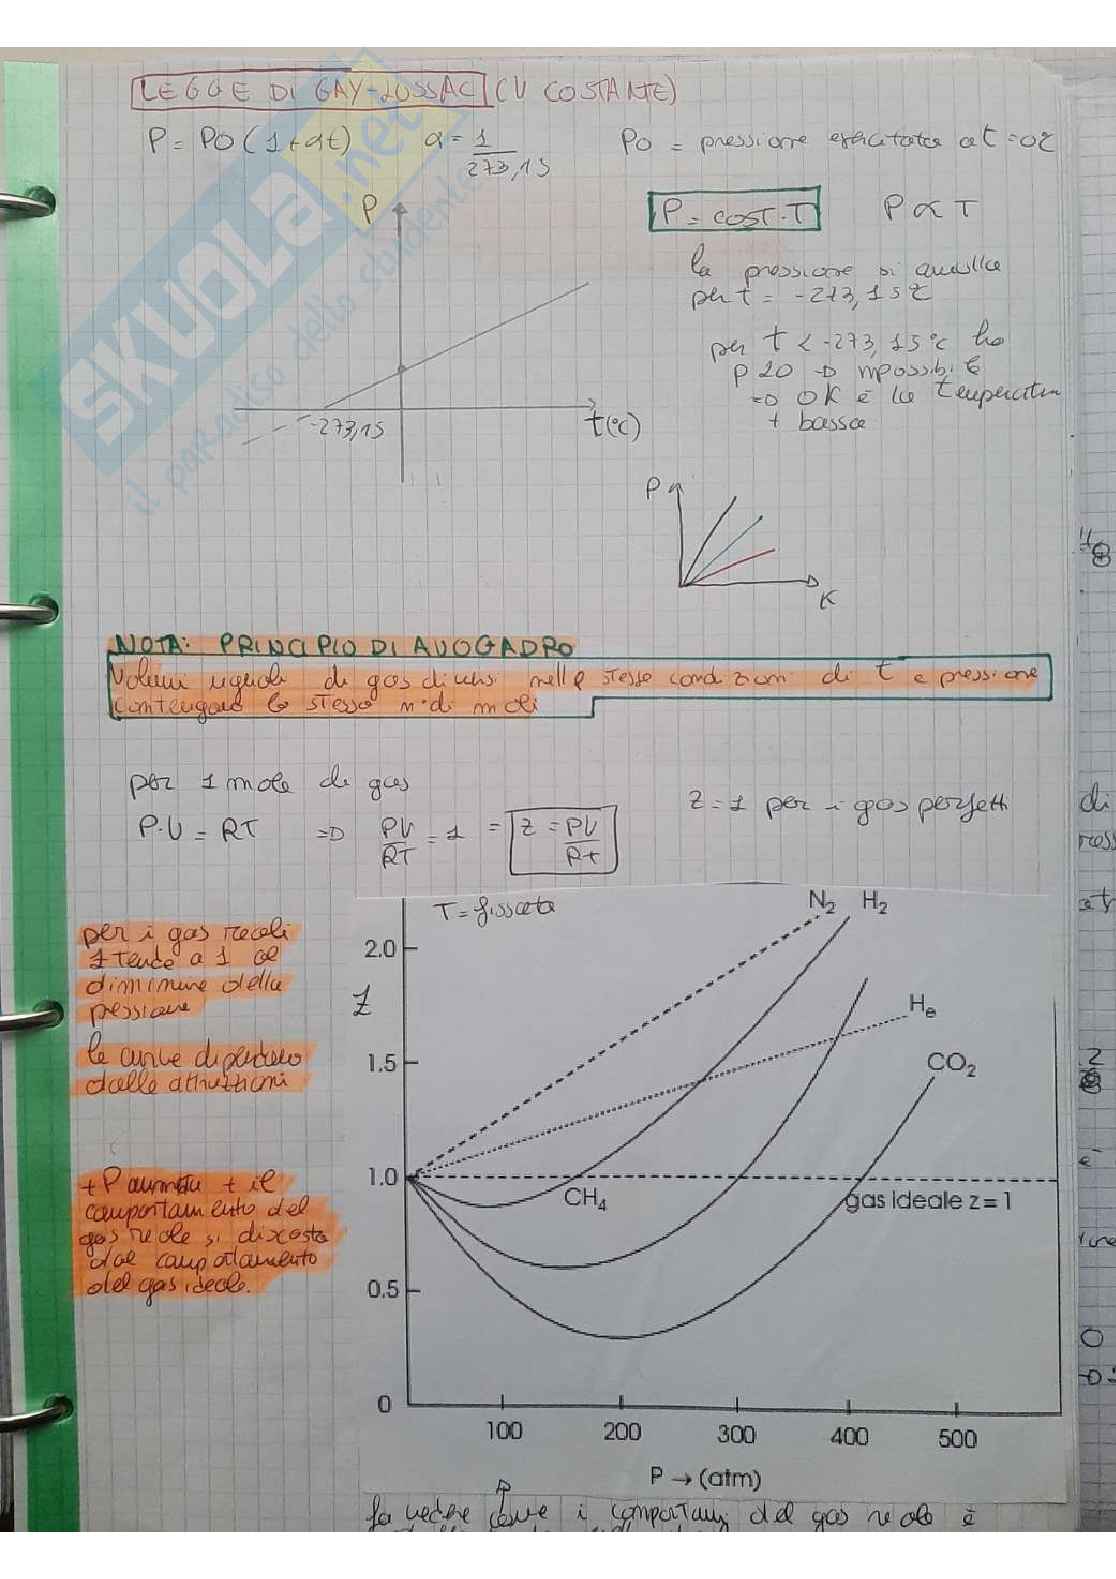 LEGGE DI GAY-LUSSAC (V COSTANTE)
P = P0 (1+αt) α = 1/273,15 P0 = pressione esercitata a t = 0°C
P
P = COST·T P ∝ T
la pressione si annulla
per t = -273,15°C
per t < -273,15°C ho
p<0 → impossibile
=> 0K è la temperatura
+ bassa
-273,15
t(°C)
P
K
NOTA: PRINCIPIO DI AVOGADRO
Volumi uguali di gas diversi nelle stesse condizioni di t e pressione
contengono lo stesso n° di moli
per 1 mole di gas
P·V = RT => PV/RT = 1 = Z = PV/Rt
Z = 1 per i gas perfetti
T = fissata
per i gas reali
Z tende a 1 al
diminuire della
pressione
le curve dipendono
dalle attrazioni
+ P aumenta + il
comportamento del
gas reale si discosta
dal comportamento
del gas ideale.
N₂ H₂
2.0
Z
He
1.5
CO₂
1.0
CH₄
gas ideale z = 1
0.5
0
100 200 300 400 500
P → (atm)
fa vedere come i comportam del gas reale è
SKUOLA.net
il paradiso dello studente